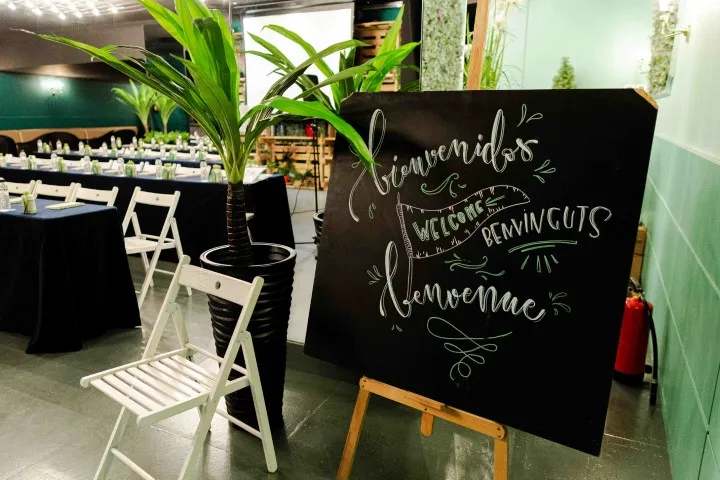 bienvenidos
WELCOME
BENVINGUTS
benvenue